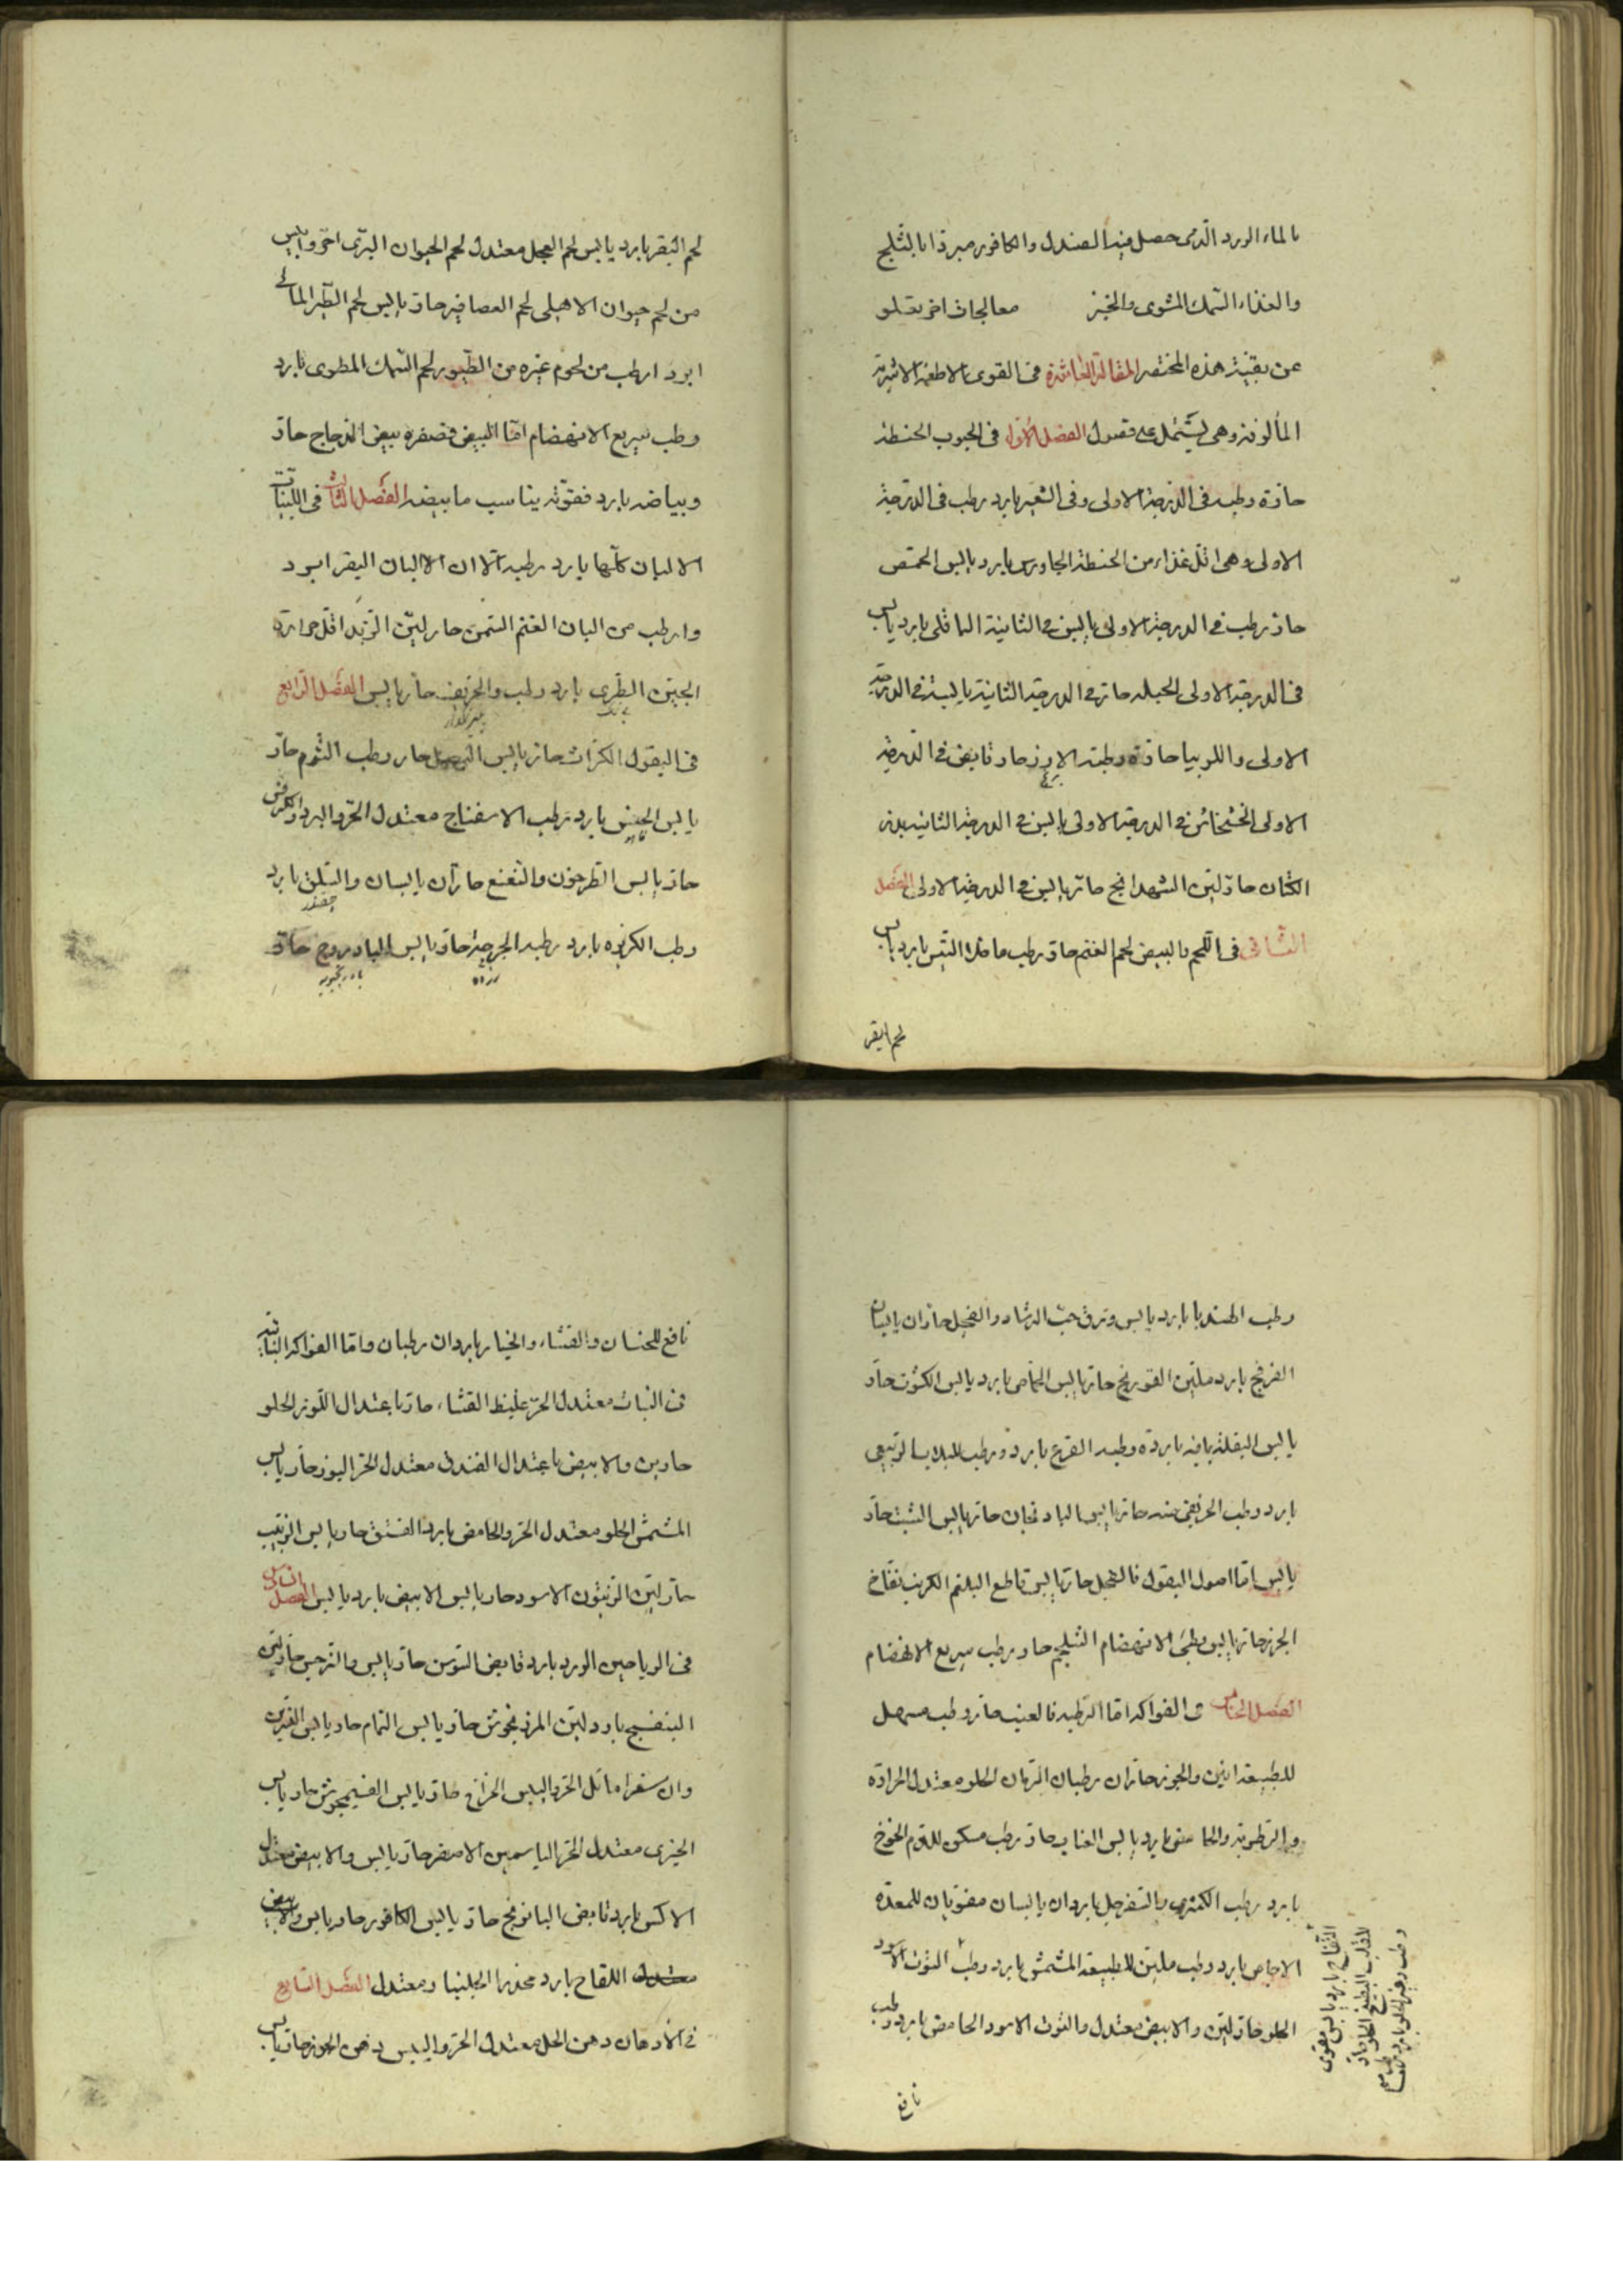 بالماء الورد الذى حصل فيه الصندل والكافور مبردا بالثلج
والغذاء السمك المشوى والخبز معالجات اخر يقلو
عن بقية هذه المختصر المقالة العاشرة فى القوى الاطعمة الاشربة
المألوفة وهى يشتمل على فصول الفصل الاول فى الحبوب الحنطة
حارة رطبه فى الدرجة الاولى وفى الشعير بارد رطب فى الدرجة
الاولى وهى اقل غذاء من الحنطة الجاورس بارد يابس الحمص
حار رطب فى الدرجة الاولى يابس فى الثانية الباقلى بارد يابس
فى الدرجة الاولى الحبله حارة فى الدرجة الثانية يابسة فى الدرجة
الاولى واللوبيا حارة رطبته الارز حار قابض فى الدرجة
الاولى الخشخاش فى الدرجة الاولى يابس فى الدرجة الثانية بذر
الكتان حار لين الشهدانج حار يابس فى الدرجة الاولى الفصل
الثانى فى اللحم والبيض لحم الغنم حار رطب ماخلا التيس بارد يابس
لحم البقر
لحم البقر بارد يابس لحم العجل معتدل لحم الحيوان البرى احر وايبس
من لحم حيوان الاهلى لحم العصافير حار يابس لحم الطير المائى
ابرد ارطب من لحوم غيره من الطيور لحم السمك المطوى بارد
رطب سريع الانهضام اما البيض فصفره بيض الدجاج حار
وبياضه بارد فقوته يناسب ما بيضه الفصل الثالث فى اللبنيات
الالبان كلها بارد رطبه الا ان الالبان البقر ابرد
وارطب من البان الغنم السمن حار لين الزبد اقل حرارة
الجبن الطرى بارد رطب والحريف حار يابس الفصل الرابع
فى البقول الكراث حار يابس البصل حار رطب الثوم حار
يابس الخس بارد رطب الاسفناج معتدل الحر والبرد الكرفس
حار يابس الطرخون والنعنع حاران يابسان والسلق بارد
چغندر
رطب الكزبره بارد رطبه الجرجير حار يابس البادروج حار
رطب الهندبا بارد يابس وترق حب الرشاد والفجل حاران يابسان
الفرفخ بارد ملين الفودنج حار يابس الحماض بارد يابس الكشوت حار
يابس البقلة يمانيه باردة رطبه القرع بارد ورطب اللبلاب الربيعى
بارد رطب الخريفى منه حار يابس البادنجان حار يابس الشبت حار
يابس اما اصول البقول فالفجل حار يابس قاطع البلغم الكرنب نفاخ
الجزر حار يابس بطئ الانهضام الشلجم حار رطب سريع الانهضام
الفصل الخامس فى الفواكه اما الرطبه فالعنب حار رطب مسهل
للطبيعة التين والجوز حاران رطبان الرمان الحلو معتدل الحرارة
والرطوبة والحامض بارد يابس العناب حار رطب مسكن للدم الخوخ
بارد رطب الكمثرى والسفرجل باردان يابسان مقويان للمعدة
الاجاص بارد رطب ملين للطبيعة المشمش بارد رطب التوت الاسود
الحلو حار لين والابيض معتدل والتوت الاسود الحامض بارد رطب
التفاح بارد يابس مقوى
للقلب البطيخ الحلو حار
رطب وغير الحلو بارد
نافع
نافع للحنسان والقثاء والخيار باردان رطبان واما الفواكه اليابسة
فى النبات معتدل الحر غليظ القثاء حار باعتدال اللوز الحلو
حار لين والابيض باعتدال الفندق معتدل الحر الجوز حار يابس
المشمش الحلو معتدل الحر والحامض بارد الفستق حار يابس الزبيب
حار لين الزيتون الاسود حار يابس الابيض بارد يابس الفصل السادس
فى الرياحين الورد بارد قابض السوسن حار يابس والنرجس حار لين
البنفسج بارد لين المرزنجوش حار يابس النمام حار يابس النسرين
وان سفرا مائل الحر واليبس الخزامى حار يابس الفنيجوش حار يابس
الخيرى معتدل الحر الياسمين الاصفر حار يابس والابيض معتدل
الاكس بارد قابض البابونج حار يابس الكافور حار يابس والابيض
معتدل اللقاح بارد مخدر الجلنار معتدل الفصل السابع
فى الادهان دهن الحل معتدل الحر واليبس دهن الجوز حار يابس